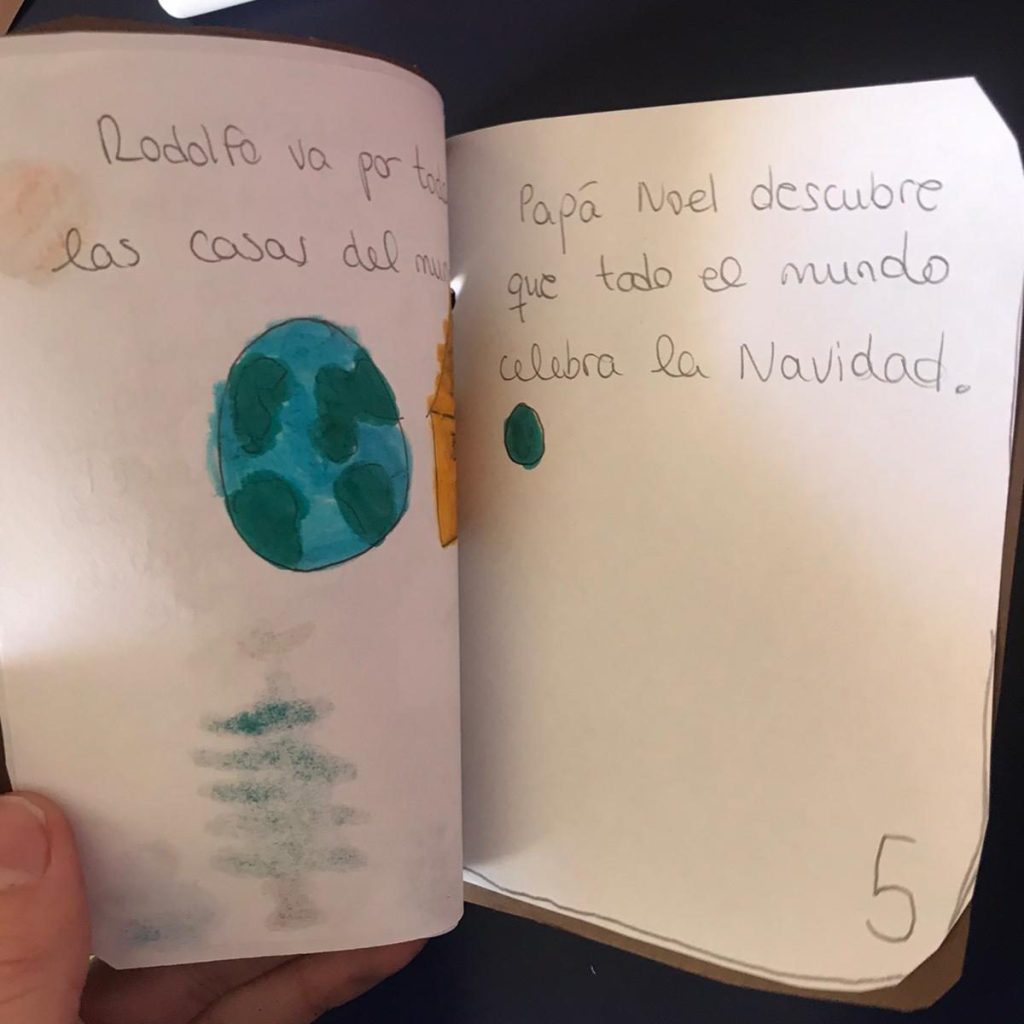 Rodolfo va por
las casas del
Papá Noel descubre
que todo el mundo
celebra la Navidad.
5